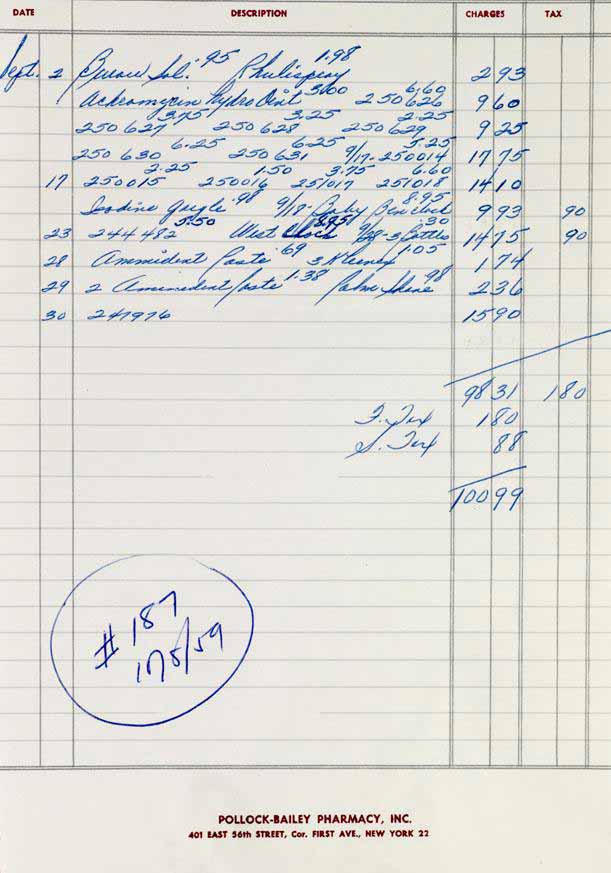 DATE DESCRIPTION CHARGES TAX
Sept. 2 Burow Sol. .95 Phulispray 1.98 2 93
Achromycin Hydro Oint 3.00 250 626 6.60 9 60
250 627 3.75 250 628 3.25 250 629 2.25 9 25
250 630 6.25 250 631 6.25 9/17-250014 5.25 17 75
17 250015 2.25 250016 1.50 251017 3.75 251018 6.60 14 10
Iodine gargle .98 9/18- Baby Ben clock 8.95 9 93 90
23 244 482 5.50 West Clock 8.95 9/28-3 Bottles .30 14 75 90
28 Ammident Paste .69 3 Kleenex 1.05 1 74
29 2 Ammident Paste 1.38 Palm Shave .98 2 36
30 247976 15 90
98 31 1 80
F. Tax 1 80
S. Tax 88
100 99
#187
10/5/59
POLLOCK-BAILEY PHARMACY, INC.
401 EAST 56th STREET, Cor. FIRST AVE., NEW YORK 22